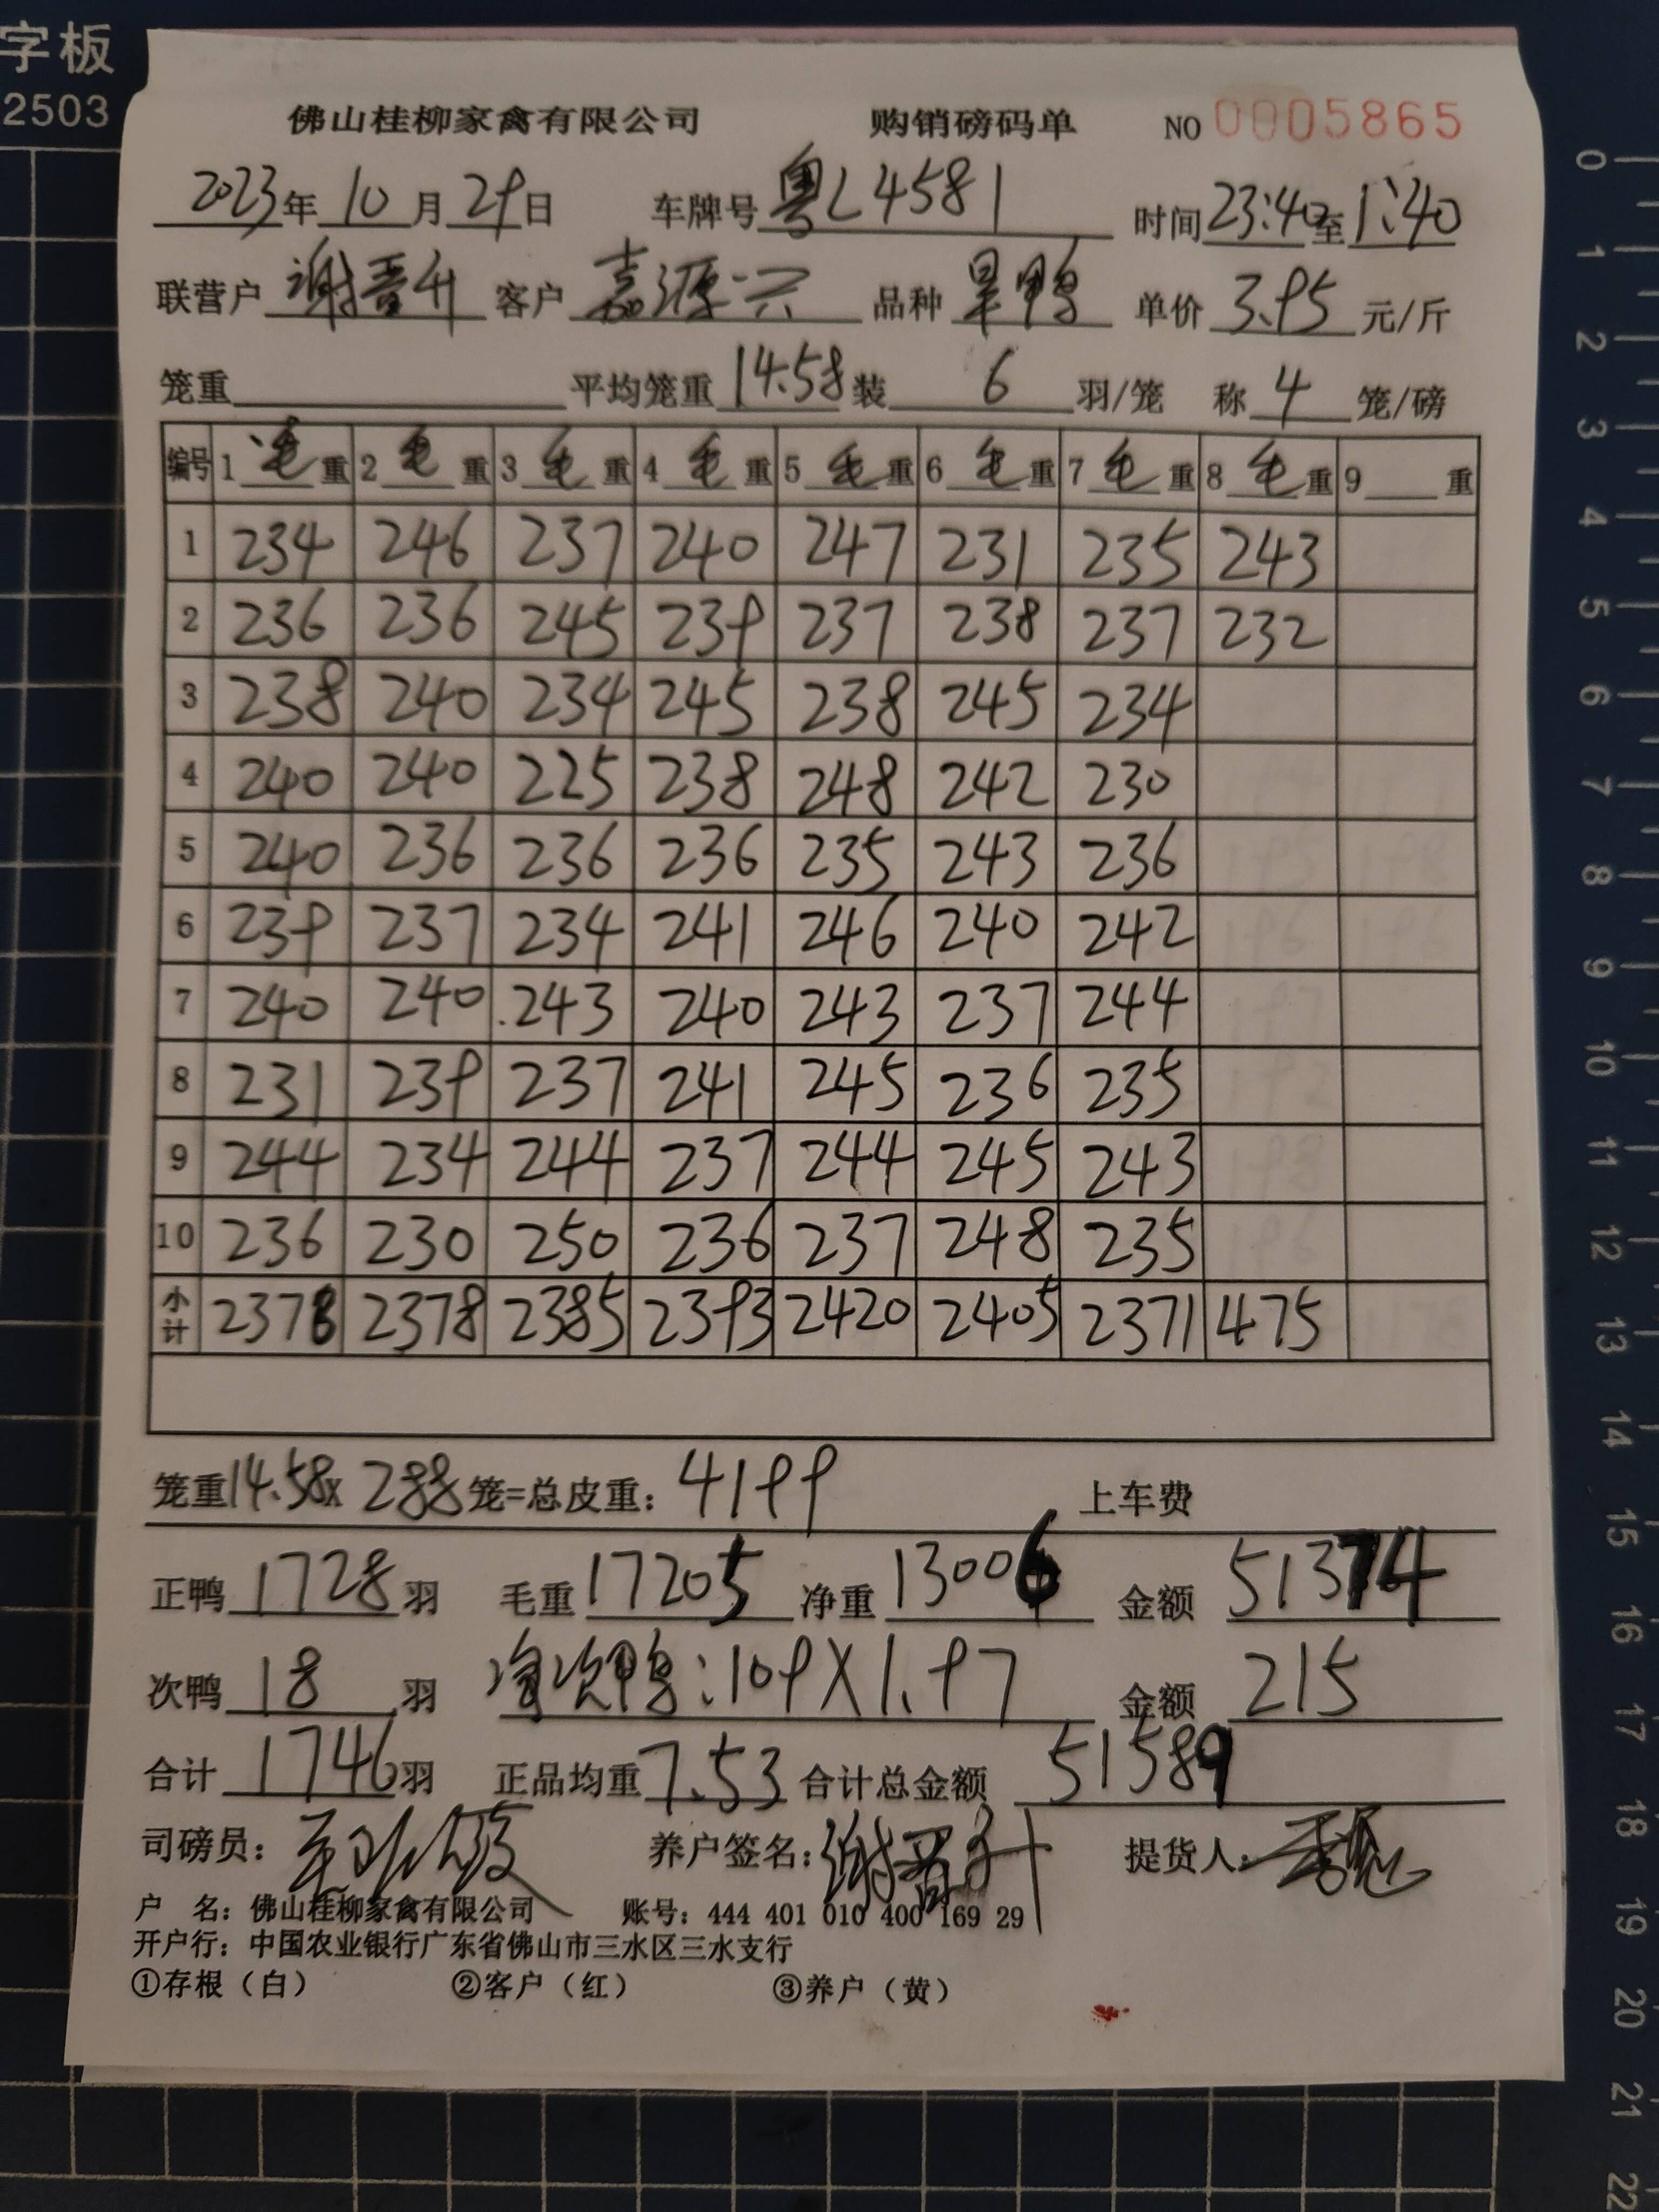 字板
2503
佛山桂柳家禽有限公司 购销磅码单 NO 0005865
2023年10月29日 车牌号粤L4581 时间23:40至1:40
联营户谢晋升 客户嘉源兴 品种旱鸭 单价3.95元/斤
笼重 平均笼重14.58装6羽/笼 称4笼/磅
编号 1毛重 2毛重 3毛重 4毛重 5毛重 6毛重 7毛重 8毛重 9重
1 234 246 237 240 247 231 235 243
2 236 236 245 239 237 238 237 232
3 238 240 234 245 238 245 234
4 240 240 225 238 248 242 230
5 240 236 236 236 235 243 236
6 239 237 234 241 246 240 242
7 240 240 243 240 243 237 244
8 231 239 237 241 245 236 235
9 244 234 244 237 244 245 243
10 236 230 250 236 237 248 235
小计 2378 2378 2385 2393 2420 2405 2371 475
笼重14.58x288笼=总皮重：4199 上车费
正鸭1728羽 毛重17205 净重13006 金额51374
次鸭18羽 次鸭：109X1.97 金额215
合计1746羽 正品均重7.53 合计总金额51589
司磅员： 养户签名：谢晋升 提货人：
户 名：佛山桂柳家禽有限公司 账号：444 401 010 400 169 29
开户行：中国农业银行广东省佛山市三水区三水支行
①存根（白） ②客户（红） ③养户（黄）
0
1
2
3
4
5
6
7
8
9
10
11
12
13
14
15
16
17
18
19
20
21
22